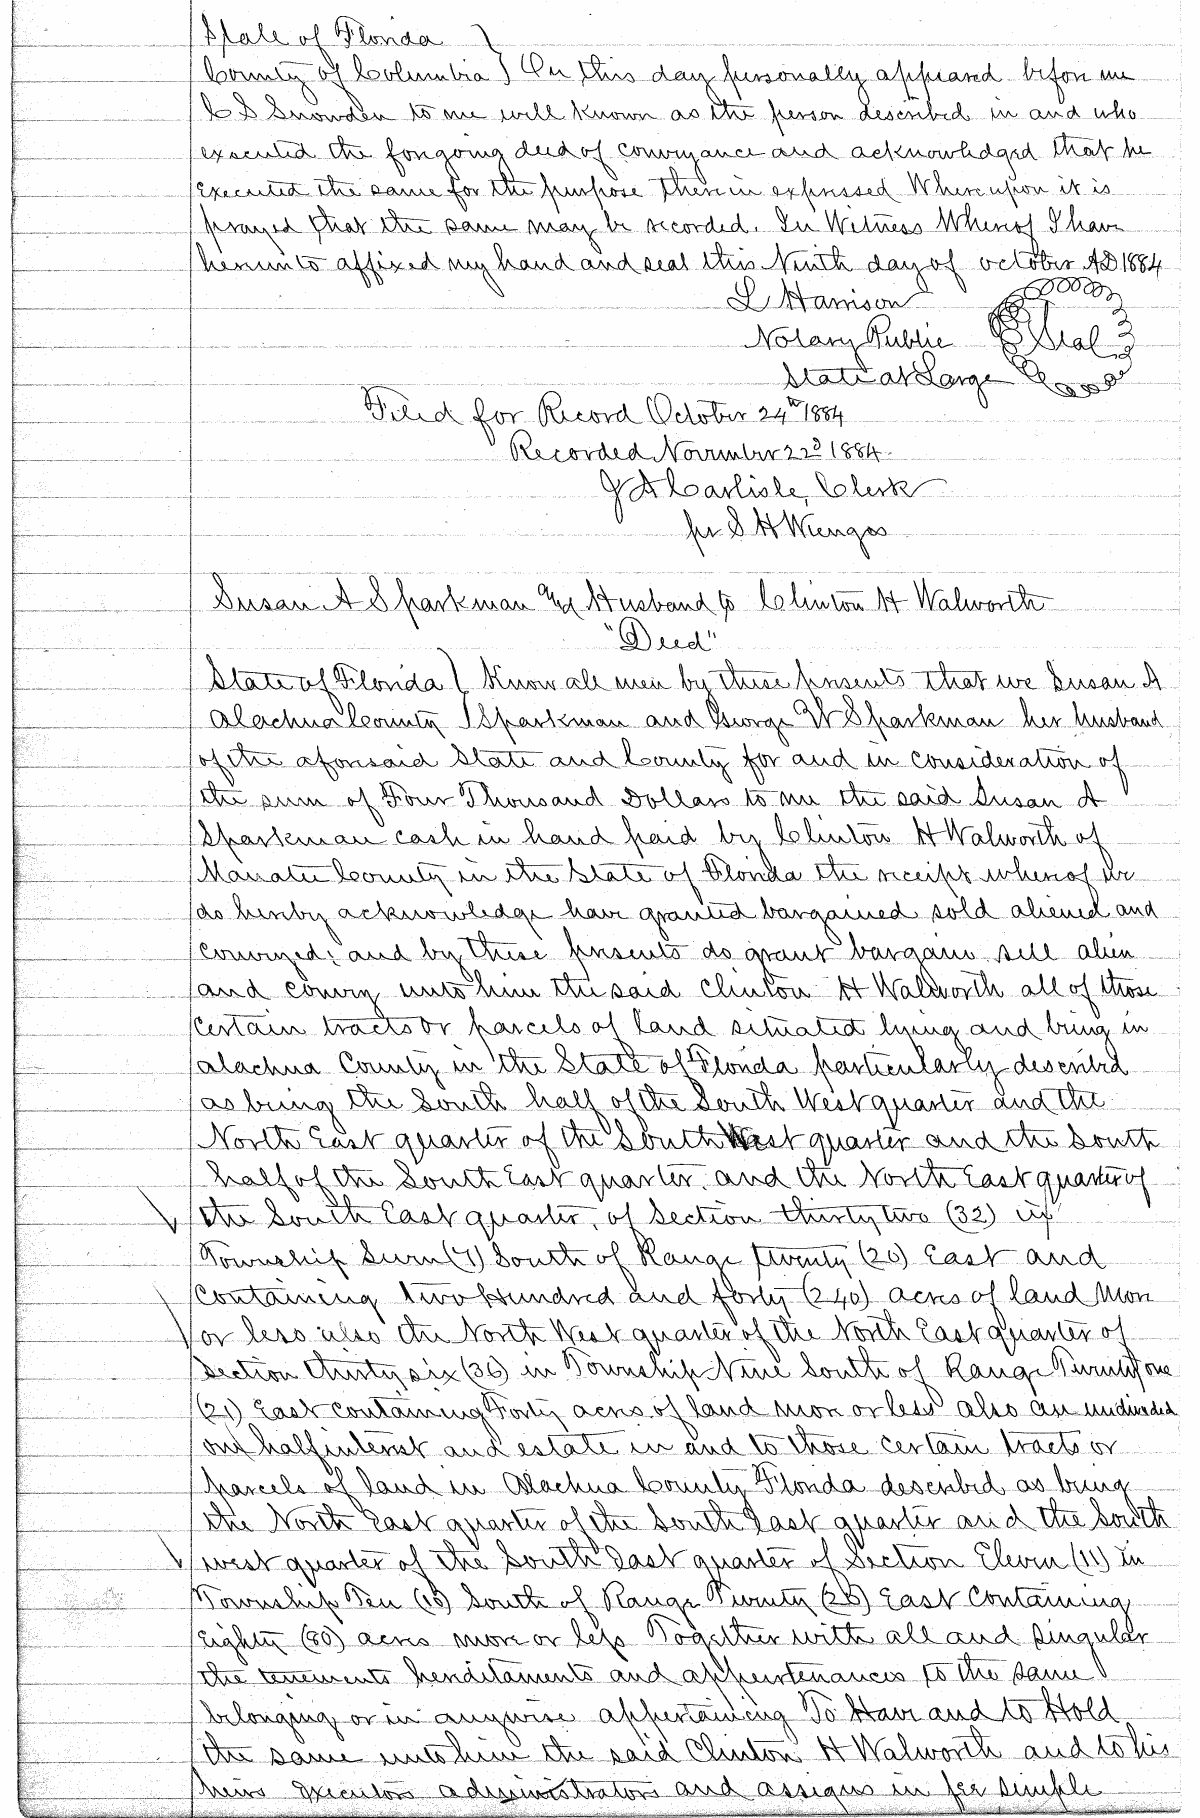 State of Florida }
County of Columbia } On this day personally appeared before me
C S Snowden to me well known as the person described in and who
executed the foregoing deed of conveyance and acknowledged that he
executed the same for the purpose therein expressed Whereupon it is
prayed that the same may be recorded. In Witness Whereof I have
hereunto affixed my hand and seal this Ninth day of October AD 1884
L Harrison
Notary Public Seal
State at Large
Filed for Record October 24th 1884
Recorded November 22d 1884
J A Carlisle, Clerk
per S H Wienges
Susan A Sparkman and Husband to Clinton H Walworth
"Deed"
State of Florida { Know all men by these presents that we Susan A
Alachua County { Sparkman and George W Sparkman her husband
of the aforesaid State and County for and in consideration of
the sum of Four Thousand Dollars to me the said Susan A
Sparkman cash in hand paid by Clinton H Walworth of
Manatee County in the State of Florida the receipt whereof we
do hereby acknowledge have granted bargained sold aliened and
conveyed; and by these presents do grant bargain sell alien
and convey unto him the said Clinton H Walworth all of those
certain tracts or parcels of land situated lying and being in
Alachua County in the State of Florida particularly described
as being the South half of the South West quarter and the
North East quarter of the South West quarter and the South
half of the South East quarter, and the North East quarter of
the South East quarter, of Section thirty two (32) in
Township Seven (7) South of Range twenty (20) East and
Containing two Hundred and forty (240) acres of land More
or less also the North West quarter of the North East quarter of
Section thirty six (36) in Township Nine South of Range Twenty one
(21) East containing Forty acres of land more or less also an undivided
one half interest and estate in and to those certain tracts or
parcels of land in Alachua County Florida described as being
the North East quarter of the South East quarter and the South
west quarter of the South East quarter of Section Eleven (11) in
Township Ten (10) South of Range Twenty (20) East Containing
Eighty (80) acres more or less Together with all and singular
the tenements hereditaments and appurtenances to the same
belonging or in anywise appertaining To Have and to Hold
the same unto him the said Clinton H Walworth and to his
heirs executors administrators and assigns in fee simple